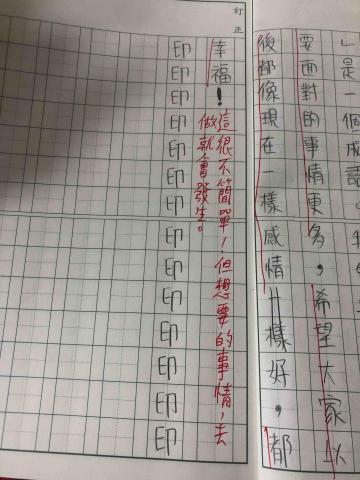 訂正
」是一個成語，
要面對的事情更多，希望大家以
後都像現在一樣感情一樣好，都
幸福！
這很不簡單！但想要的事情，去
做就會發生。
印印印印印印印印印印印印印